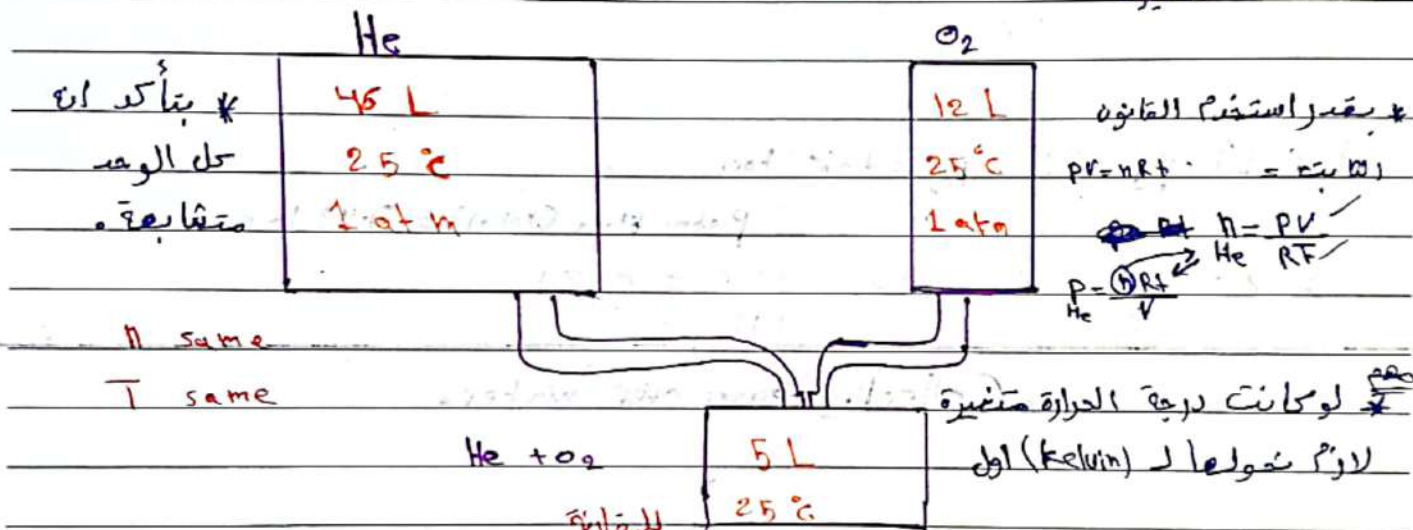 He
O₂
* بتأكد ان
كل الوحد
متشابهة .
46 L
25 °C
1 atm
12 L
25 °C
1 atm
* بقدر استخدم القانون
PV = nRt =
n He = PV / RT
P He = nRt / V
n same
T same
* لو كانت درجة الحرارة متغيرة
لازم نحولها لـ (kelvin) اول
He + O₂
5 L
25 °C